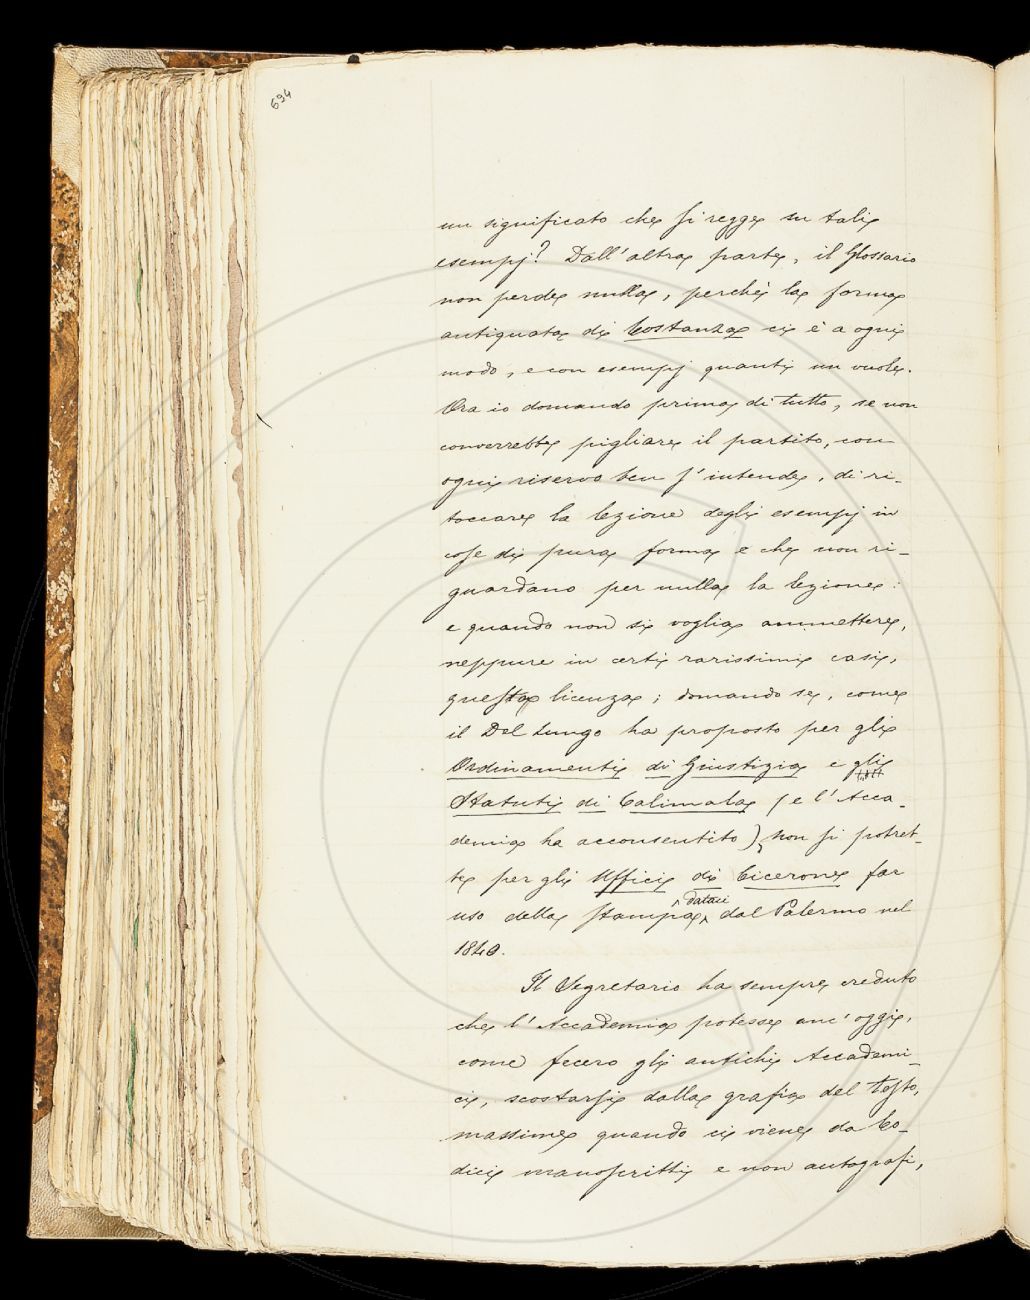 694
un significato che si regge su tali
esempj? Dall'altra parte, il Glossario
non perde nulla, perchè la forma
antiquata di Costanza ci è a ogni
modo, e con esempj quanti un vuole.
Ora io domando prima di tutto, se non
converrebbe pigliare il partito, con
ogni riservo ben s'intende, di ri-
toccare la lezione degli esempj in
cose di pura forma e che non ri-
guardano per nulla la lezione:
e quando non si voglia ammettere,
neppure in certi rarissimi casi,
questa licenza; domando se, come
il Del Lungo ha proposto per gli
Ordinamenti di Giustizia e gli
Statuti di Calimala (e l'Acca-
demia ha acconsentito), non si potreb-
be per gli Ufficj di Cicerone far
uso della stampa dataci dal Palermo nel
1840.
Il Segretario ha sempre creduto
che l'Accademia potesse anc'oggi,
come fecero gli antichi Accademi-
ci, scostarsi dalla grafia del testo,
massime quando ci viene da Co-
dici manoscritti e non autografi,